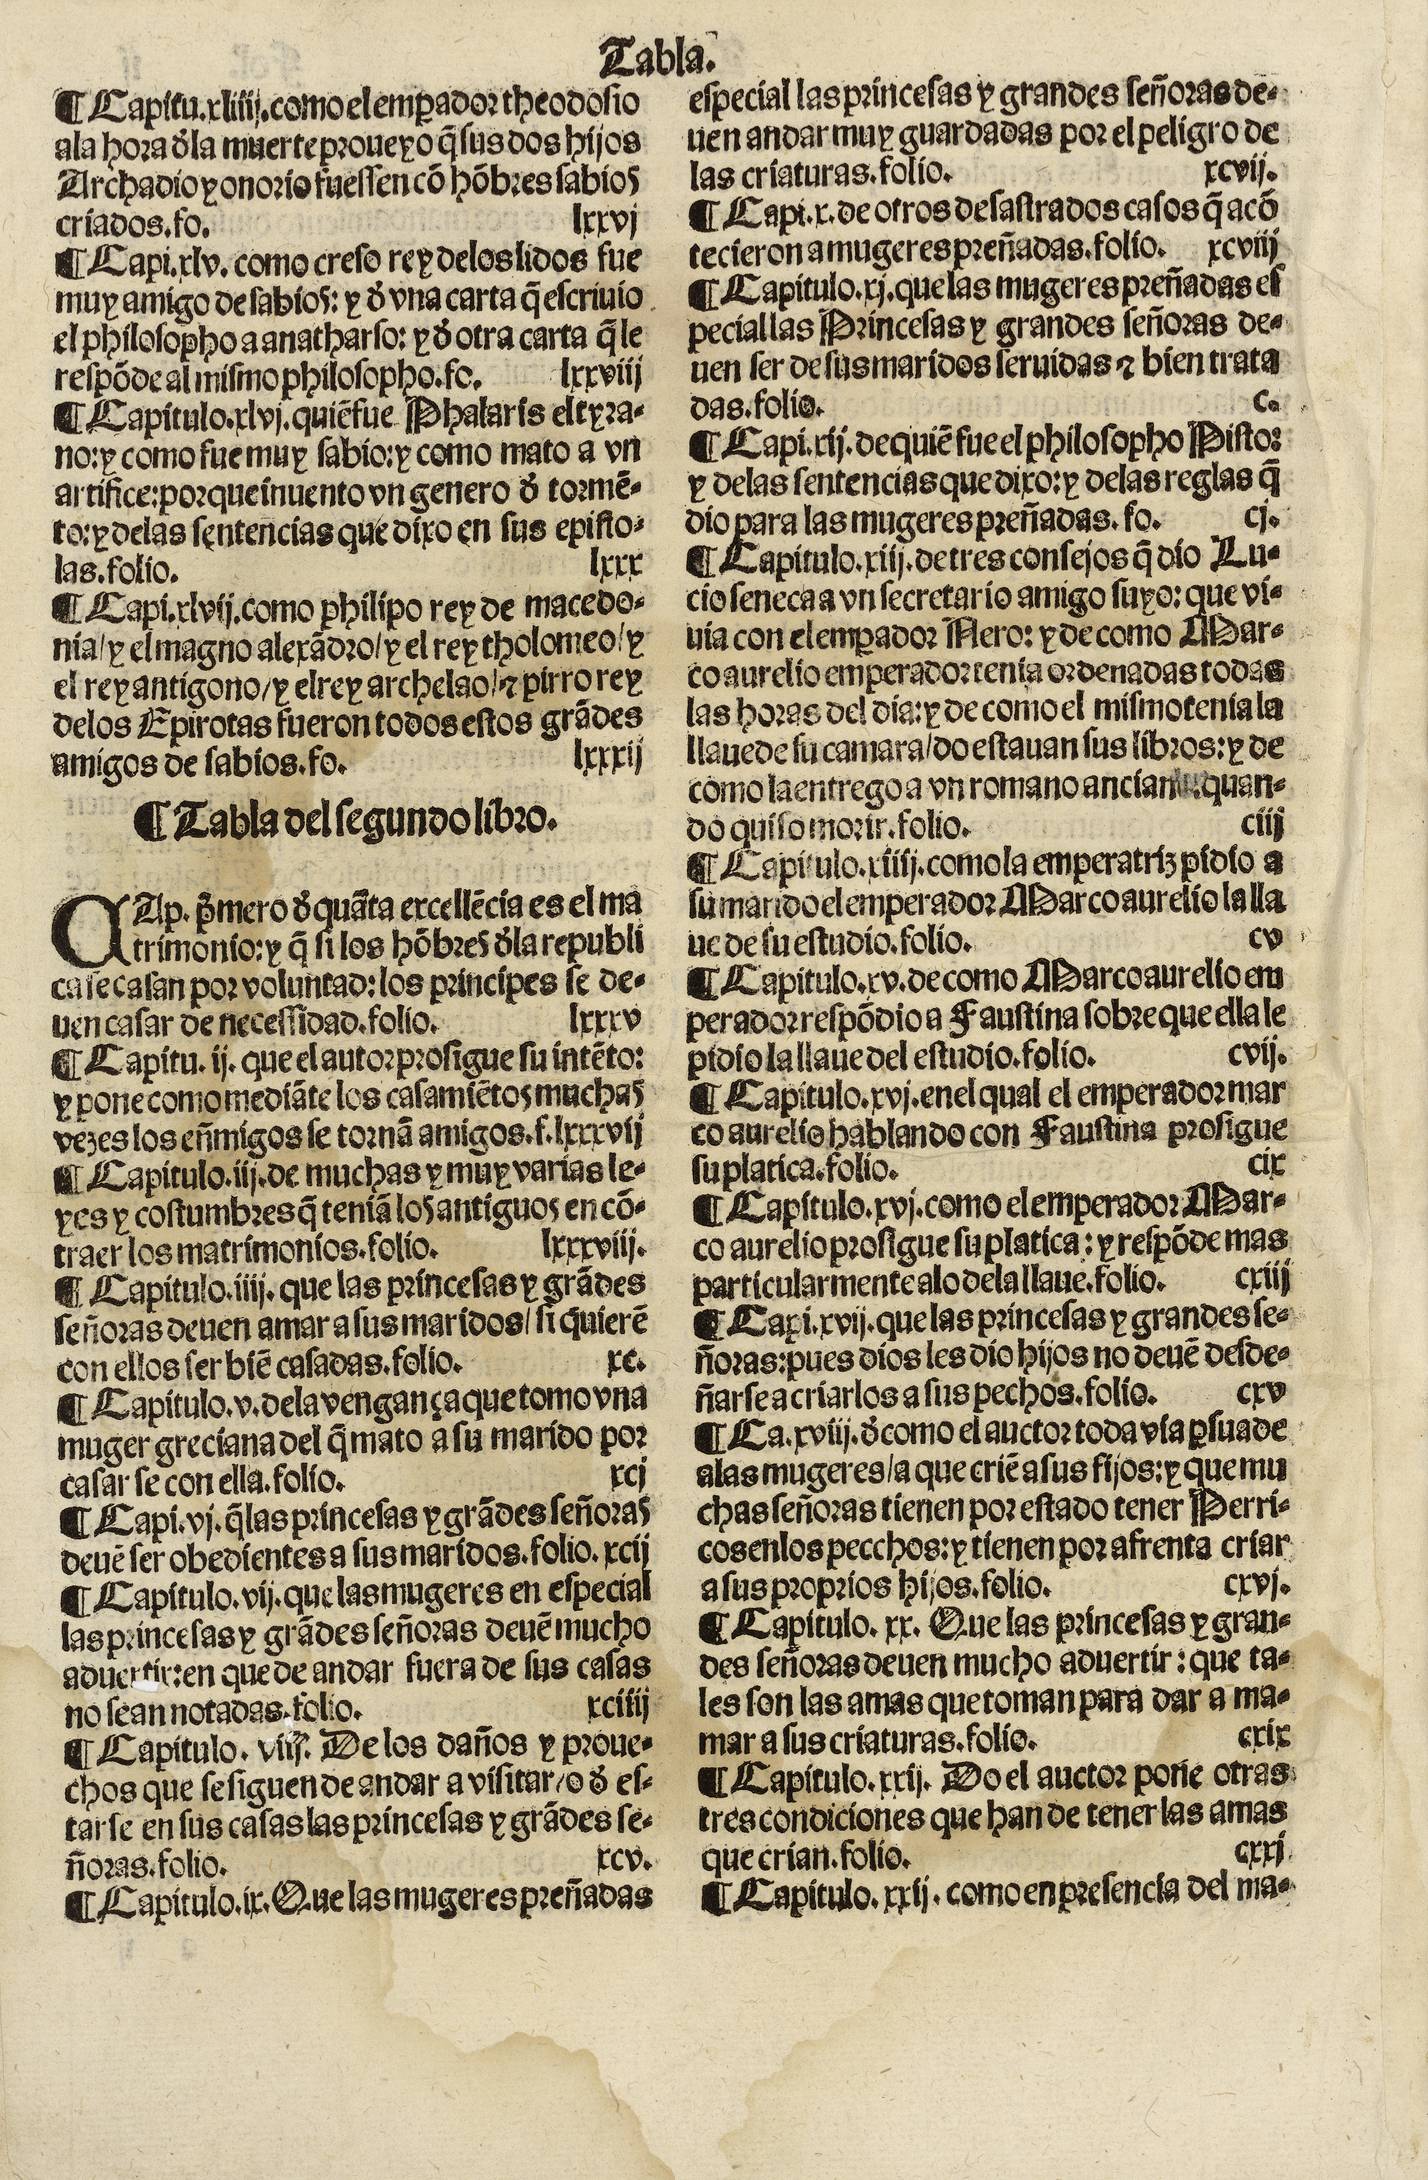 Tabla.
¶ Capitu.xliiij.como el emꝑador theodosio
ala hora đla muerte proueyo q̃ sus dos hijos
Archadio y onorio fuessen cõ hõbres sabios
criados.fo. lxxvj
¶ Capi.xlv. como creso rey delos lidos fue
muy amigo de sabios: y đ vna carta q̃ escriuio
el philosopho a anatharso: y đ otra carta q̃ le
respõde al mismo philosopho.fo. lxxviij
¶ Capitulo.xlvj.quiẽ fue Phalaris el tyra-
no:y como fue muy sabio:y como mato a vn
artifice:porque inuento vn genero đ tormẽ-
to:y delas sentencias que dixo en sus episto-
las.folio. lxxx
¶ Capi.xlvij.como philipo rey de macedo-
nia/y el magno alexãdro/y el rey tholomeo/y
el rey antigono/y el rey archelao/⁊ pirro rey
delos Epirotas fueron todos estos grãdes
amigos de sabios.fo. lxxxij
¶ Tabla del segundo libro.
CAp. p̃mero đ quãta excellẽcia es el ma
trimonio:y q̃ si los hõbres đla republi
ca se casan por voluntad:los principes se de-
uen casar de necessidad.folio. lxxxv
¶ Capitu. ij. que el autor prosigue su intẽto:
y pone como mediãte los casamiẽtos muchas
vezes los eñmigos se tornã amigos.f.lxxxvij
¶ Capitulo.iij.de muchas y muy varias le-
yes y costumbres q̃ teniã los antiguos en cõ-
traer los matrimonios.folio. lxxxviij.
¶ Capitulo.iiij. que las princesas y grãdes
señoras deuen amar a sus maridos/ si q̃uierẽ
con ellos ser biẽ casadas.folio. xc.
¶ Capitulo.v.dela vengança que tomo vna
muger greciana del q̃ mato a su marido por
casar se con ella.folio. xcj
¶ Capi.vj.q̃ las princesas y grãdes señoras
deuẽ ser obedientes a sus maridos.folio.xcij
¶ Capitulo.vij.que las mugeres en especial
las princesas y grãdes señoras deuẽ mucho
aduertir:en que de andar fuera de sus casas
no sean notadas.folio. xciiij
¶ Capitulo. viij. De los daños y proue-
chos que se siguen de andar a visitar/o đ es-
tar se en sus casas las princesas y grãdes se-
ñoras.folio. xcv.
¶ Capitulo.ix.Que las mugeres preñadas
especial las princesas y grandes señoras de-
uen andar muy guardadas por el peligro de
las criaturas.folio. xcvij.
¶ Capi.x.de otros desastrados casos q̃ acõ
tecieron a mugeres preñadas.folio. xcviij
¶ Capitulo.xj.que las mugeres preñadas es
pecial las Princesas y grandes señoras de-
uen ser de sus maridos seruidas ⁊ bien trata
das.folio. c.
¶ Capi.xij.de quiẽ fue el philosopho Pisto:
y delas sentencias que dixo:y delas reglas q̃
dio para las mugeres preñadas. fo. cj.
¶ Capitulo.xiij.de tres consejos q̃ dio Lu-
cio seneca a vn secretario amigo suyo: que vi-
uia con el emꝑador Nero: y de como Mar-
co aurelio emperador tenia ordenadas todas
las horas del dia:y de como el mismo tenia la
llaue de su camara/do estauan sus libros:y de
como la entrego a vn romano quan-
do quiso morir.folio. ciij
¶ Capitulo.xiiij.como la emperatriz pidio a
su marido el emperador Marco aurelio la lla
ue de su estudio.folio. cv
¶ Capitulo.xv.de como Marco aurelio em
perador respõdio a Faustina sobre que ella le
pidio la llaue del estudio.folio. cvij.
¶ Capitulo.xvj.enel qual el emperador mar
co aurelio hablando con Faustina prosigue
su platica.folio. cix
¶ Capitulo.xvj.como el emperador Mar-
co aurelio prosigue su platica:y respõde mas
particularmente alo dela llaue.folio. cxiij
¶ Capi.xvij.que las princesas y grandes se-
ñoras:pues dios les dio hijos no deuẽ desde-
ñarse a criarlos a sus pechos.folio. cxv
¶ Ca.xviij.đ como el auctor toda via ꝑsuade
alas mugeres/a que criẽ a sus fijos:y que mu
chas señoras tienen por estado tener Perri-
cos enlos pecchos:y tienen por afrenta criar
a sus proprios hijos.folio. cxvj.
¶ Capitulo. xx. Que las princesas y gran-
des señoras deuen mucho aduertir: que ta-
les son las amas que toman para dar a ma-
mar a sus criaturas.folio. cxix
¶ Capitulo.xxij. Do el auctor pone otras
tres condiciones que han de tener las amas
que crian.folio. cxxj.
¶ Capitulo.xxij. como en presencia del ma-